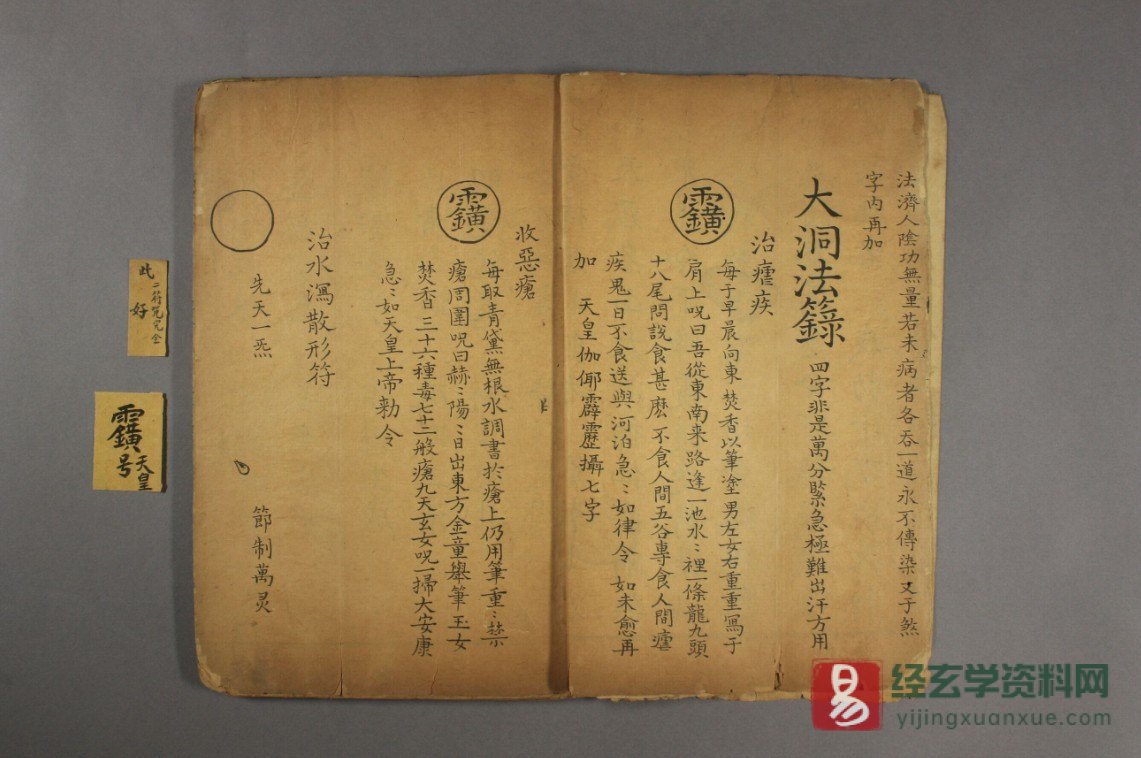 法濟人陰功無量若未病者各吞一道永不傳染又于煞
字内再加
大洞法籙 四字非是萬分緊急極難出汗方用
治瘧疾
每于早晨向東焚香以筆塗男左女右重重寫于
肩上呪曰吾從東南来路逢一池水〻裡一條龍九頭
十八尾問說食甚麽不食人間五谷專食人間瘧
疾鬼一日不食送與河泊急〻如律令 如未愈再
加 天皇伽倻霹靂攝七字
收惡瘡
每取青黛無根水調書於瘡上仍用筆重〻禁
瘡周圍呪曰赫〻陽〻日出東方金童舉筆玉女
焚香三十六種毒七十二般瘡九天玄女呪一掃大安康
急〻如天皇上帝勅令
治水瀉散形符
先天一炁 節制萬灵
此二符咒完全
好
天皇
号
易
经玄学资料网
yijingxuanxue.com